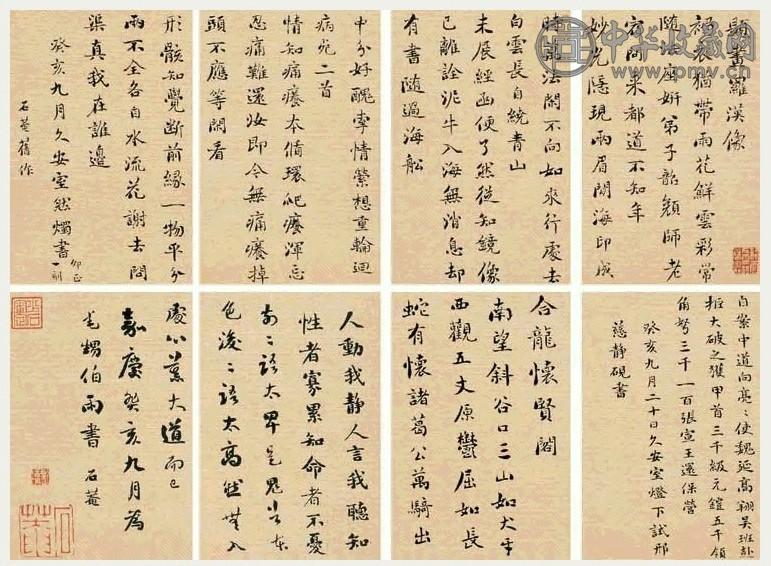 題畫羅漢像
衣猶帶雨花鮮雲彩常
隨座妍弟子韶顏師老
問來都道不知年
妙光隱現兩眉間海印
時說法閑不向如來行處去
白雲長自繞青山
未展經函便了然從知鏡像
已離詮泥牛入海無消息却
有書隨過海船
中分好醜牽情縈想重輪迴
病二首
情知痛癢本循環爬癢渾忘
忍痛難還汝即今無痛癢掉
頭不應等閑看
形骸知覺斷前緣一物平分
兩不全各自水流花謝去問
渠真我在誰邊
癸亥九月久安室然燭書
石菴舊作
自案中道向亮〻使魏延高翔吳班赴
拒大破之獲甲首三千級元鎧五千領
角弩三千一百張宣王還保營
癸亥九月二十日久安室燈下試邢
慈靜硯書
合龍懷賢閣
南望斜谷口三山如犬牙
西觀五丈原鬱屈如長
蛇有懷諸葛公萬騎出
人動我靜人言我聽知
性者寡累知命者不憂
前二語太卑是鬼谷本
色後二語太高然無入
處心薰大道而已
嘉慶癸亥九月為
毛甥伯雨書 石菴
中华收藏网
www.ipmv.cn